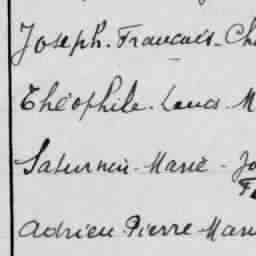 Joseph. Francois. Ch
Théophile. Louis. M
Saturnin. Marie - Jo
Adrien Pierre Marie